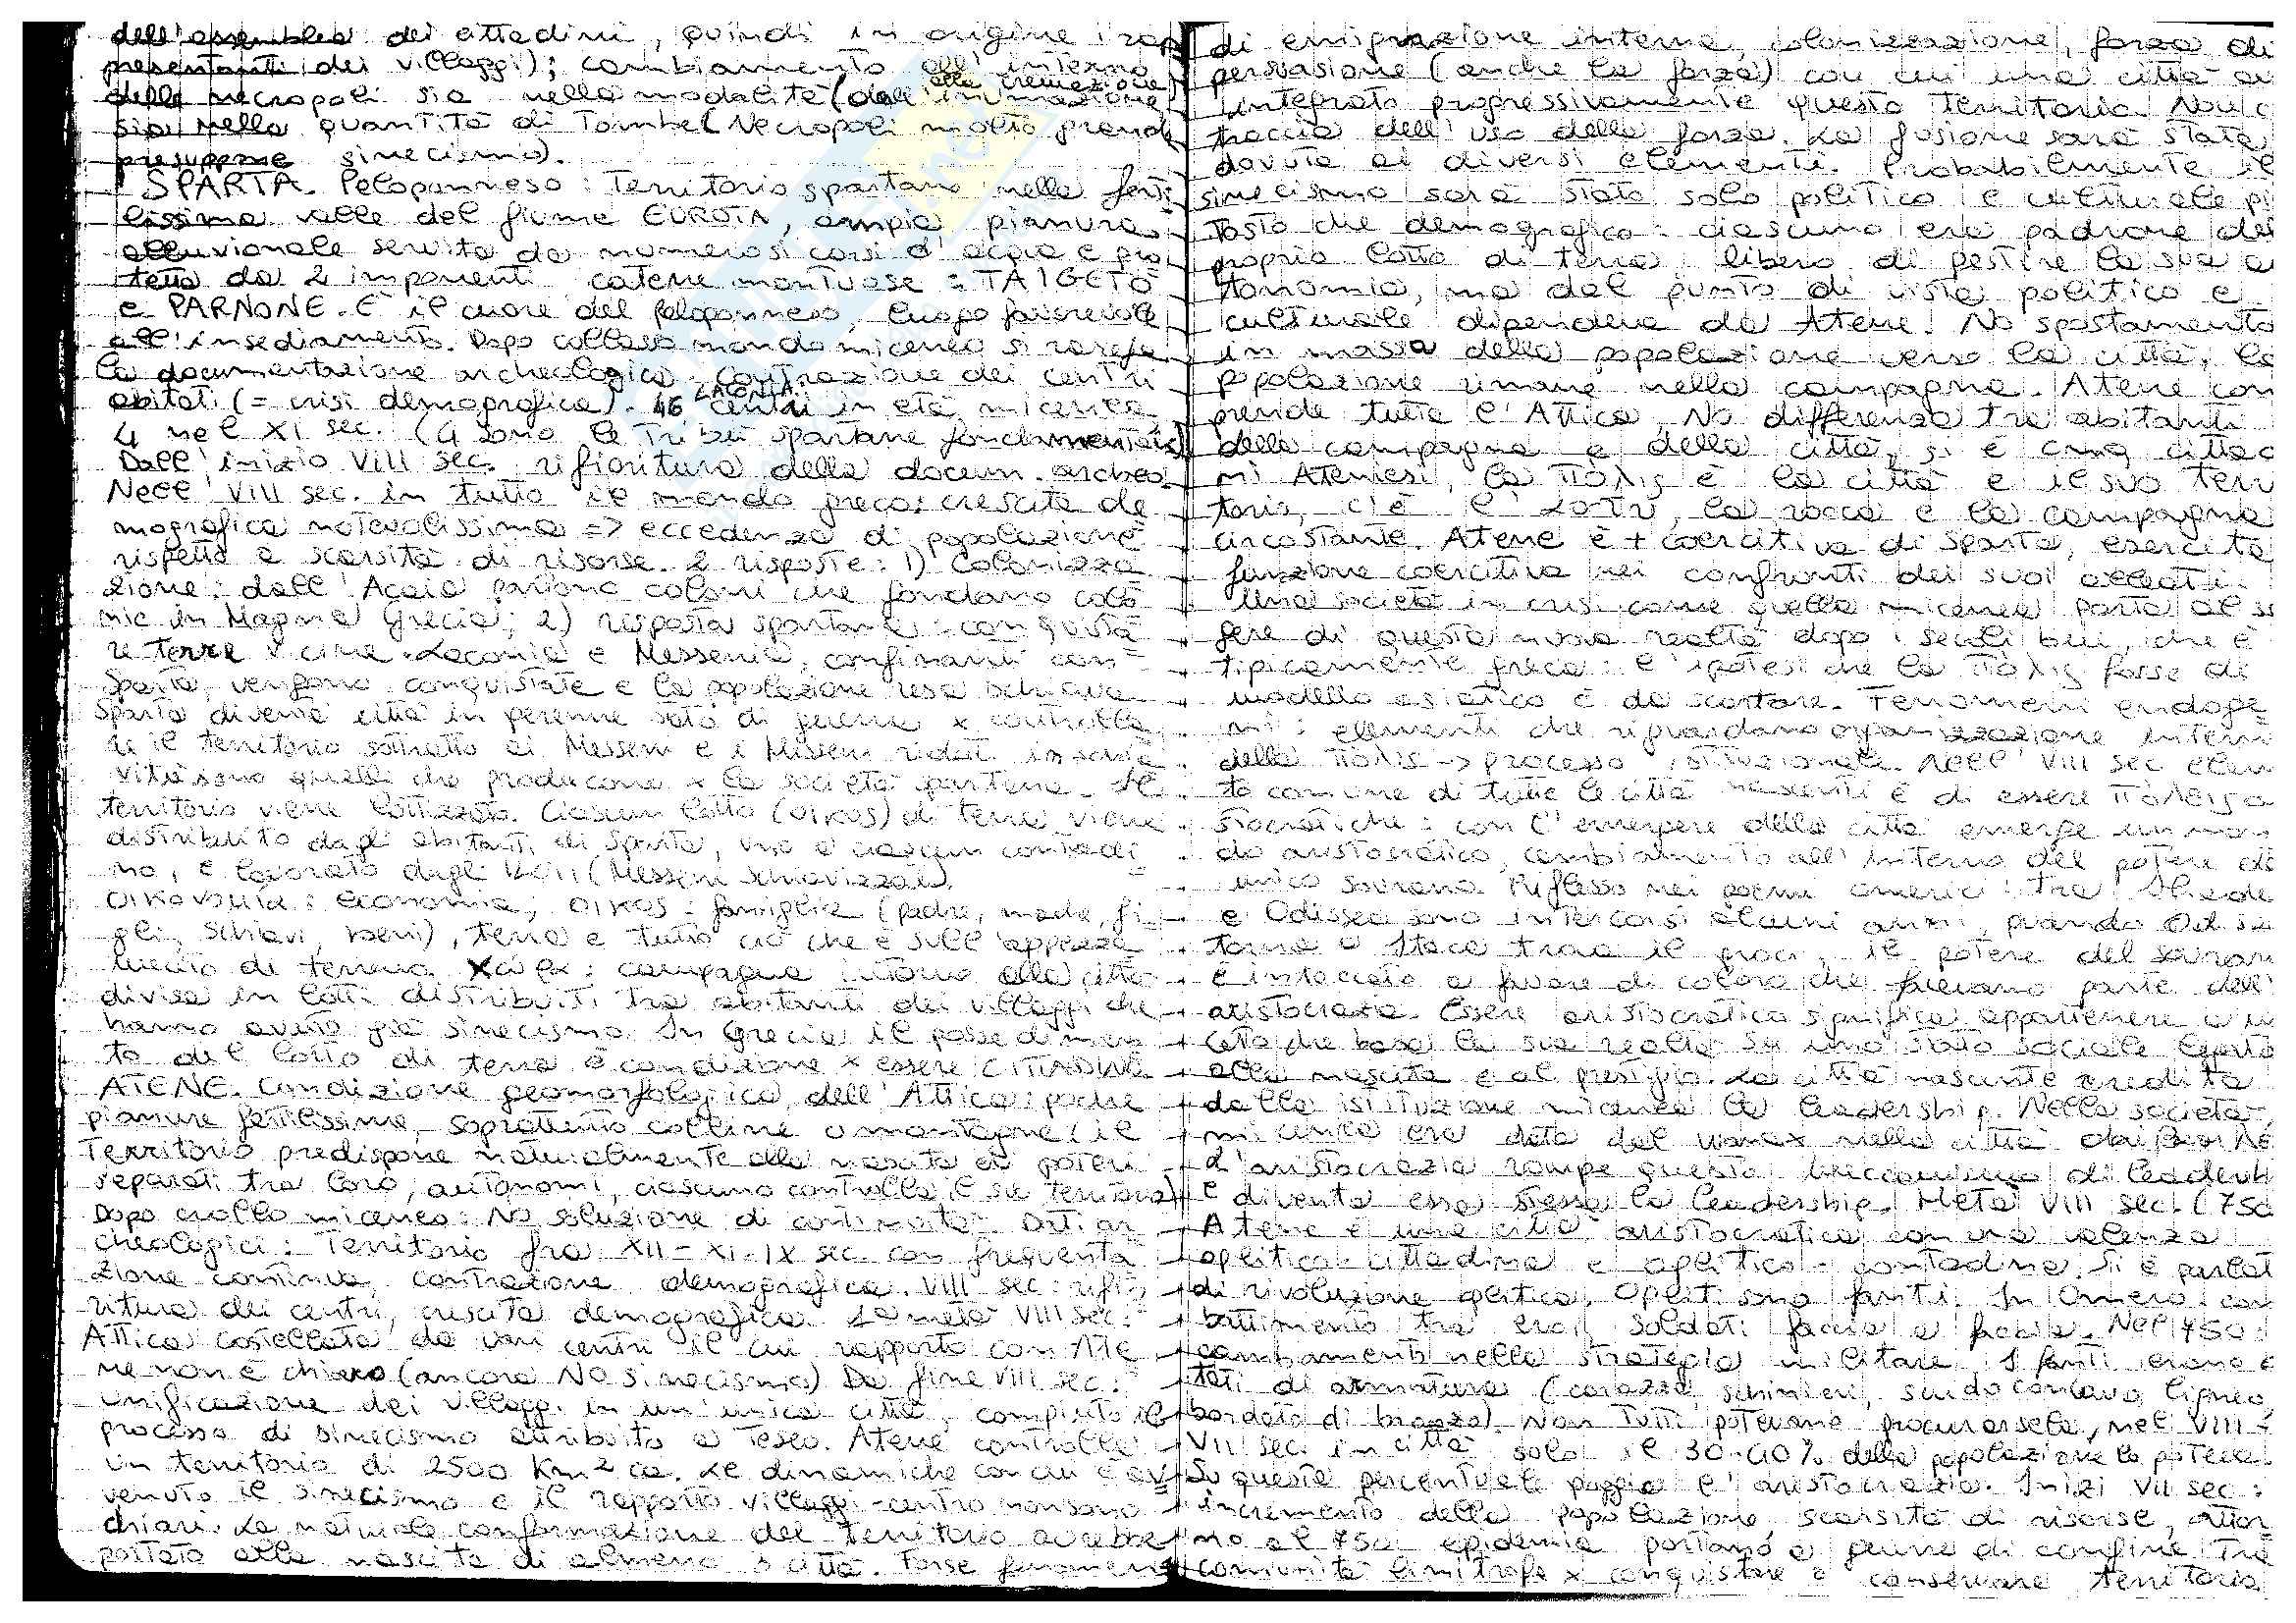 dell'assemblea dei cittadini, quindi in origine i rap
presentanti dei villaggi); cambiamento all'interno
delle necropoli sia nella modalità (dall'inumazione alla cremazione)
sia nella quantità di Tombe (Necropoli molto grandi
presuppone sinecismo).
SPARTA. Peloponneso: Territorio spartano nella ferti
lissima valle del fiume EUROTA, ampia pianura
alluvionale servita da numerosi corsi d'acqua e pro
tetta da 2 imponenti catene montuose: TAIGETO
e PARNONE. È il cuore del Peloponneso, luogo favorevole
all'insediamento. Dopo collasso mondo miceneo si rarefa
la documentazione archeologica. Contrazione dei centri
abitati (= crisi demografica). 46 centri in LACONIA in età micenea
4 nel XI sec. (4 sono le Tribù spartane fondamentali)
Dall'inizio VIII sec. rifioritura della docum. archeo.
Nell'VIII sec. in tutto il mondo greco: crescita de
mografica notevolissima => eccedenza di popolazione
rispetto a scarsità di risorse. 2 risposte: 1) Colonizza
zione: dall'Acaia partono coloni che fondano colo
nie in Magna Grecia; 2) risposta spartana: conquista
re terre vicine. Laconia e Messenia, confinanti con
Sparta, vengono conquistate e la popolazione resa schiava
Sparta diventa città in perenne stato di guerra x controlla
re il territorio sottratto ai Messeni e i Messeni ridotti in schia
vitù sono quelli che producono x la società spartana. Il
territorio viene lottizzato. Ciascun lotto (OIKOS) di terra viene
distribuito dagli abitanti di Sparta, uno a ciascun contadi
no, e lavorato dagli Iloti (Messeni schiavizzati).
OIKOVOMIA: economia; OIKOS: famiglia (padre, madre, fi
gli, schiavi, beni), terra e tutto ciò che è sull'appezza
mento di terreno. Xώρα: campagna intorno alla città
divisa in lotti distribuiti tra abitanti dei villaggi che
hanno avuto già sinecismo. In Grecia il possedimen
to del lotto di terra è condizione x essere CITTADINO
ATENE. Condizione geomorfologica dell'Attica: poche
pianure fertilissime, soprattutto colline o montagne: il
Territorio predispone naturalmente alla nascita di poteri
separati tra loro, autonomi, ciascuno controlla il suo territorio
Dopo crollo miceneo: No soluzione di continuità. Dati ar
cheologici: Territorio fra XII-XI-IX sec. con frequenta
zione continua, contrazione demografica. VIII sec: rifio
ritura dei centri, crescita demografica. 1a metà VIII sec:
Attica costellata da vari centri il cui rapporto con Ate
ne non è chiaro (ancora No sinecismo) Da fine VIII sec:
unificazione dei villaggi in un'unica città, compiuto il
processo di sinecismo attribuito a Teseo. Atene controlla
un territorio di 2500 Km² ca. Le dinamiche con cui è av
venuto il sinecismo e il rapporto villaggi-centro non sono
chiari. La naturale conformazione del territorio avrebbe
portato alla nascita di almeno 3 città. Forse fenomeni
di emigrazione interna, colonizzazione, forza di
persuasione (anche la forza) con cui una città av
integrato progressivamente questo territorio. Non c
traccia dell'uso della forza. La fusione sarà stata
dovuta ai diversi elementi. Probabilmente il
sinecismo sarà stato solo politico e culturale piu
tosto che demografico: ciascuno era padrone del
proprio lotto di terra, libero di gestire la sua a
tonomia, ma dal punto di vista politico e
culturale dipendeva da Atene. No spostamento
in massa della popolazione verso la città, la
popolazione rimane nella campagna. Atene com
prende tutta l'Attica. No differenza tra abitanti
della campagna e della città, si è cmq cittad
ni Ateniesi, la πόλις è la città e il suo terri
torio, c'è l'άστυ, la rocca e la campagna
circostante. Atene è + coercitiva di Sparta, esercita
funzione coercitiva nei confronti dei suoi alleati.
Una società in crisi come quella micenea porta al so
gere di questa nuova realtà dopo i secoli bui, che è
tipicamente greca: l'ipotesi che la πόλις fosse di
modello asiatico è da scartare. Fenomeni endoge
ni: elementi che riguardano organizzazione intern
della πόλις -> processo istituzionale. Nell'VIII sec elem
to comune di tutte le città nascenti è di essere πόλεις a
stocratiche: con l'emergere della città emerge un mon
do aristocratico, cambiamento all'interno del potere di
unico sovrano. Riflesso nei poemi omerici: tra Iliade
e Odissea sono intercorsi alcuni anni, quando Odisse
torna a Itaca trova i proci, il potere del sovran
è intaccato a favore di coloro che facevano parte dell'
aristocrazia. Essere aristocratico significa appartenere a u
ceto che basa la sua realtà su uno stato sociale legato
alla nascita e al prestigio. La città nascente eredita
dalla istituzione micenea la leadership. Nella società
micenea era data dal wanax nella città dai βασιλε
L'aristocrazia rompe questo meccanismo di leadersh
e diventa essa stessa la leadership. Metà VIII sec. (750
Atene è una città aristocratica con una valenza
oplitico-cittadina e oplitico-contadina. Si è parlat
di rivoluzione oplitica. Opliti sono fanti. In Omero: com
battimento tra eroi, soldati faccia a faccia. Nel 750:
cambiamenti nella strategia militare. I fanti erano d
tati di armatura (corazza, schinieri, scudo concavo ligneo,
bordato di bronzo). Non Tutti potevano procurarsela, nel VIII-
VII sec. in città solo il 30-40% della popolazione lo poteva.
Su questa percentuale poggia l'aristocrazia. Inizi VII sec:
incremento della popolazione, scarsità di risorse, attor
no al 750 epidemia portano a guerre di confine tra
comunità limitrofe x conquistare o conservare territorio.